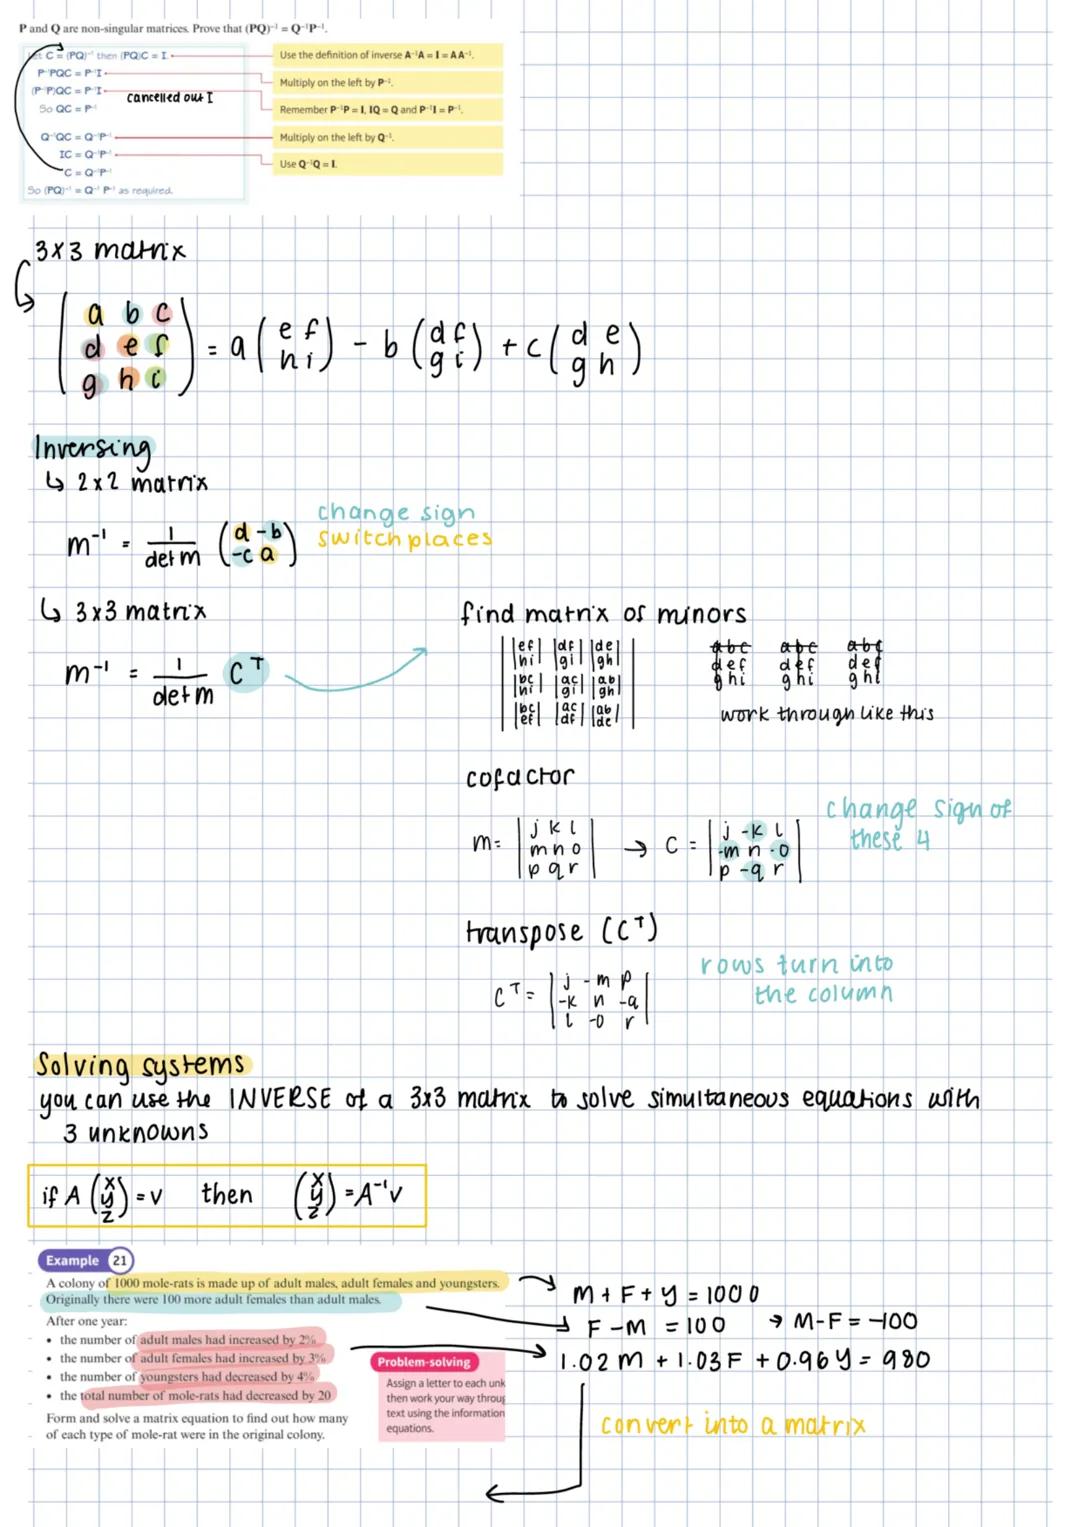 P and Q are non-singular matrices. Prove that (PQ)⁻¹ = Q⁻¹P⁻¹.
Let C = (PQ)⁻¹ then (PQ)C = I.
Use the definition of inverse A⁻¹A = I = AA⁻¹.
P⁻¹PQC = P⁻¹I
Multiply on the left by P⁻¹.
(P⁻¹P)QC = P⁻¹I
cancelled out I
Remember P⁻¹P = I, IQ = Q and P⁻¹I = P⁻¹.
So QC = P⁻¹
Q⁻¹QC = Q⁻¹P⁻¹
Multiply on the left by Q⁻¹.
IC = Q⁻¹P⁻¹
Use Q⁻¹Q = I.
C = Q⁻¹P⁻¹
So (PQ)⁻¹ = Q⁻¹ P⁻¹ as required.
3x3 matrix
a b c
d e f
g h i
= a (e f
h i) - b (d f
g i) + c (d e
g h)
Inversing
↳ 2x2 matrix
m⁻¹ = 1/det m (d -b
-c a)
change sign
switch places
↳ 3x3 matrix
m⁻¹ = 1/det m Cᵀ
find matrix of minors
|ef| |df| |de|
|hi| |gi| |gh|
|bc| |ac| |ab|
|hi| |gi| |gh|
|bc| |ac| |ab|
|ef| |df| |de|
abc abc abc
def def def
ghi ghi ghi
work through like this
cofactor
m= | j k l
m n o
p q r | → C = | j -k l
-m n -o
p -q r |
change sign of
these 4
transpose (Cᵀ)
Cᵀ = | j -m p
-k n -q
l -o r |
rows turn into
the column
Solving systems
you can use the INVERSE of a 3x3 matrix to solve simultaneous equations with
3 unknowns
if A (x y z) = v then (x y z) = A⁻¹v
Example 21
A colony of 1000 mole-rats is made up of adult males, adult females and youngsters.
Originally there were 100 more adult females than adult males.
After one year:
• the number of adult males had increased by 2%
• the number of adult females had increased by 3%
• the number of youngsters had decreased by 4%
• the total number of mole-rats had decreased by 20
Form and solve a matrix equation to find out how many
of each type of mole-rat were in the original colony.
Problem-solving
Assign a letter to each unk
then work your way throug
text using the information
equations.
M + F + y = 1000
F - M = 100 → M-F = -100
1.02 M + 1.03 F + 0.96 y = 980
convert into a matrix